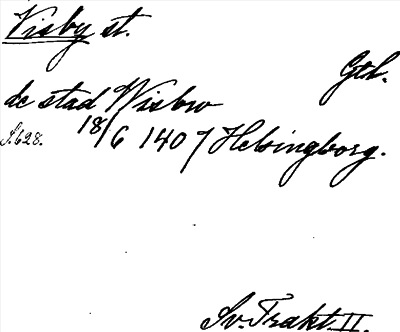 Visby st.
Gtl.
de stad Wisbw
S. 628. 18/6 1407 Helsingborg.
Sv. Trakt. II.